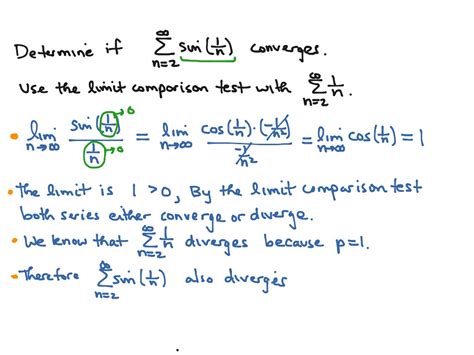 Determine if ∞ Σ n=2 sin(1/n) converges.
Use the limit comparison test with ∞ Σ n=2 1/n.
• lim n→∞ sin(1/n)→0 / 1/n→0 = lim n→∞ cos(1/n)·(-1/n²) / -1/n² = lim n→∞ cos(1/n) = 1
• The limit is 1 >0, By the limit comparison test
both series either converge or diverge.
• We know that ∞ Σ n=2 1/n diverges because p=1.
• Therefore ∞ Σ n=2 sin(1/n) also diverges